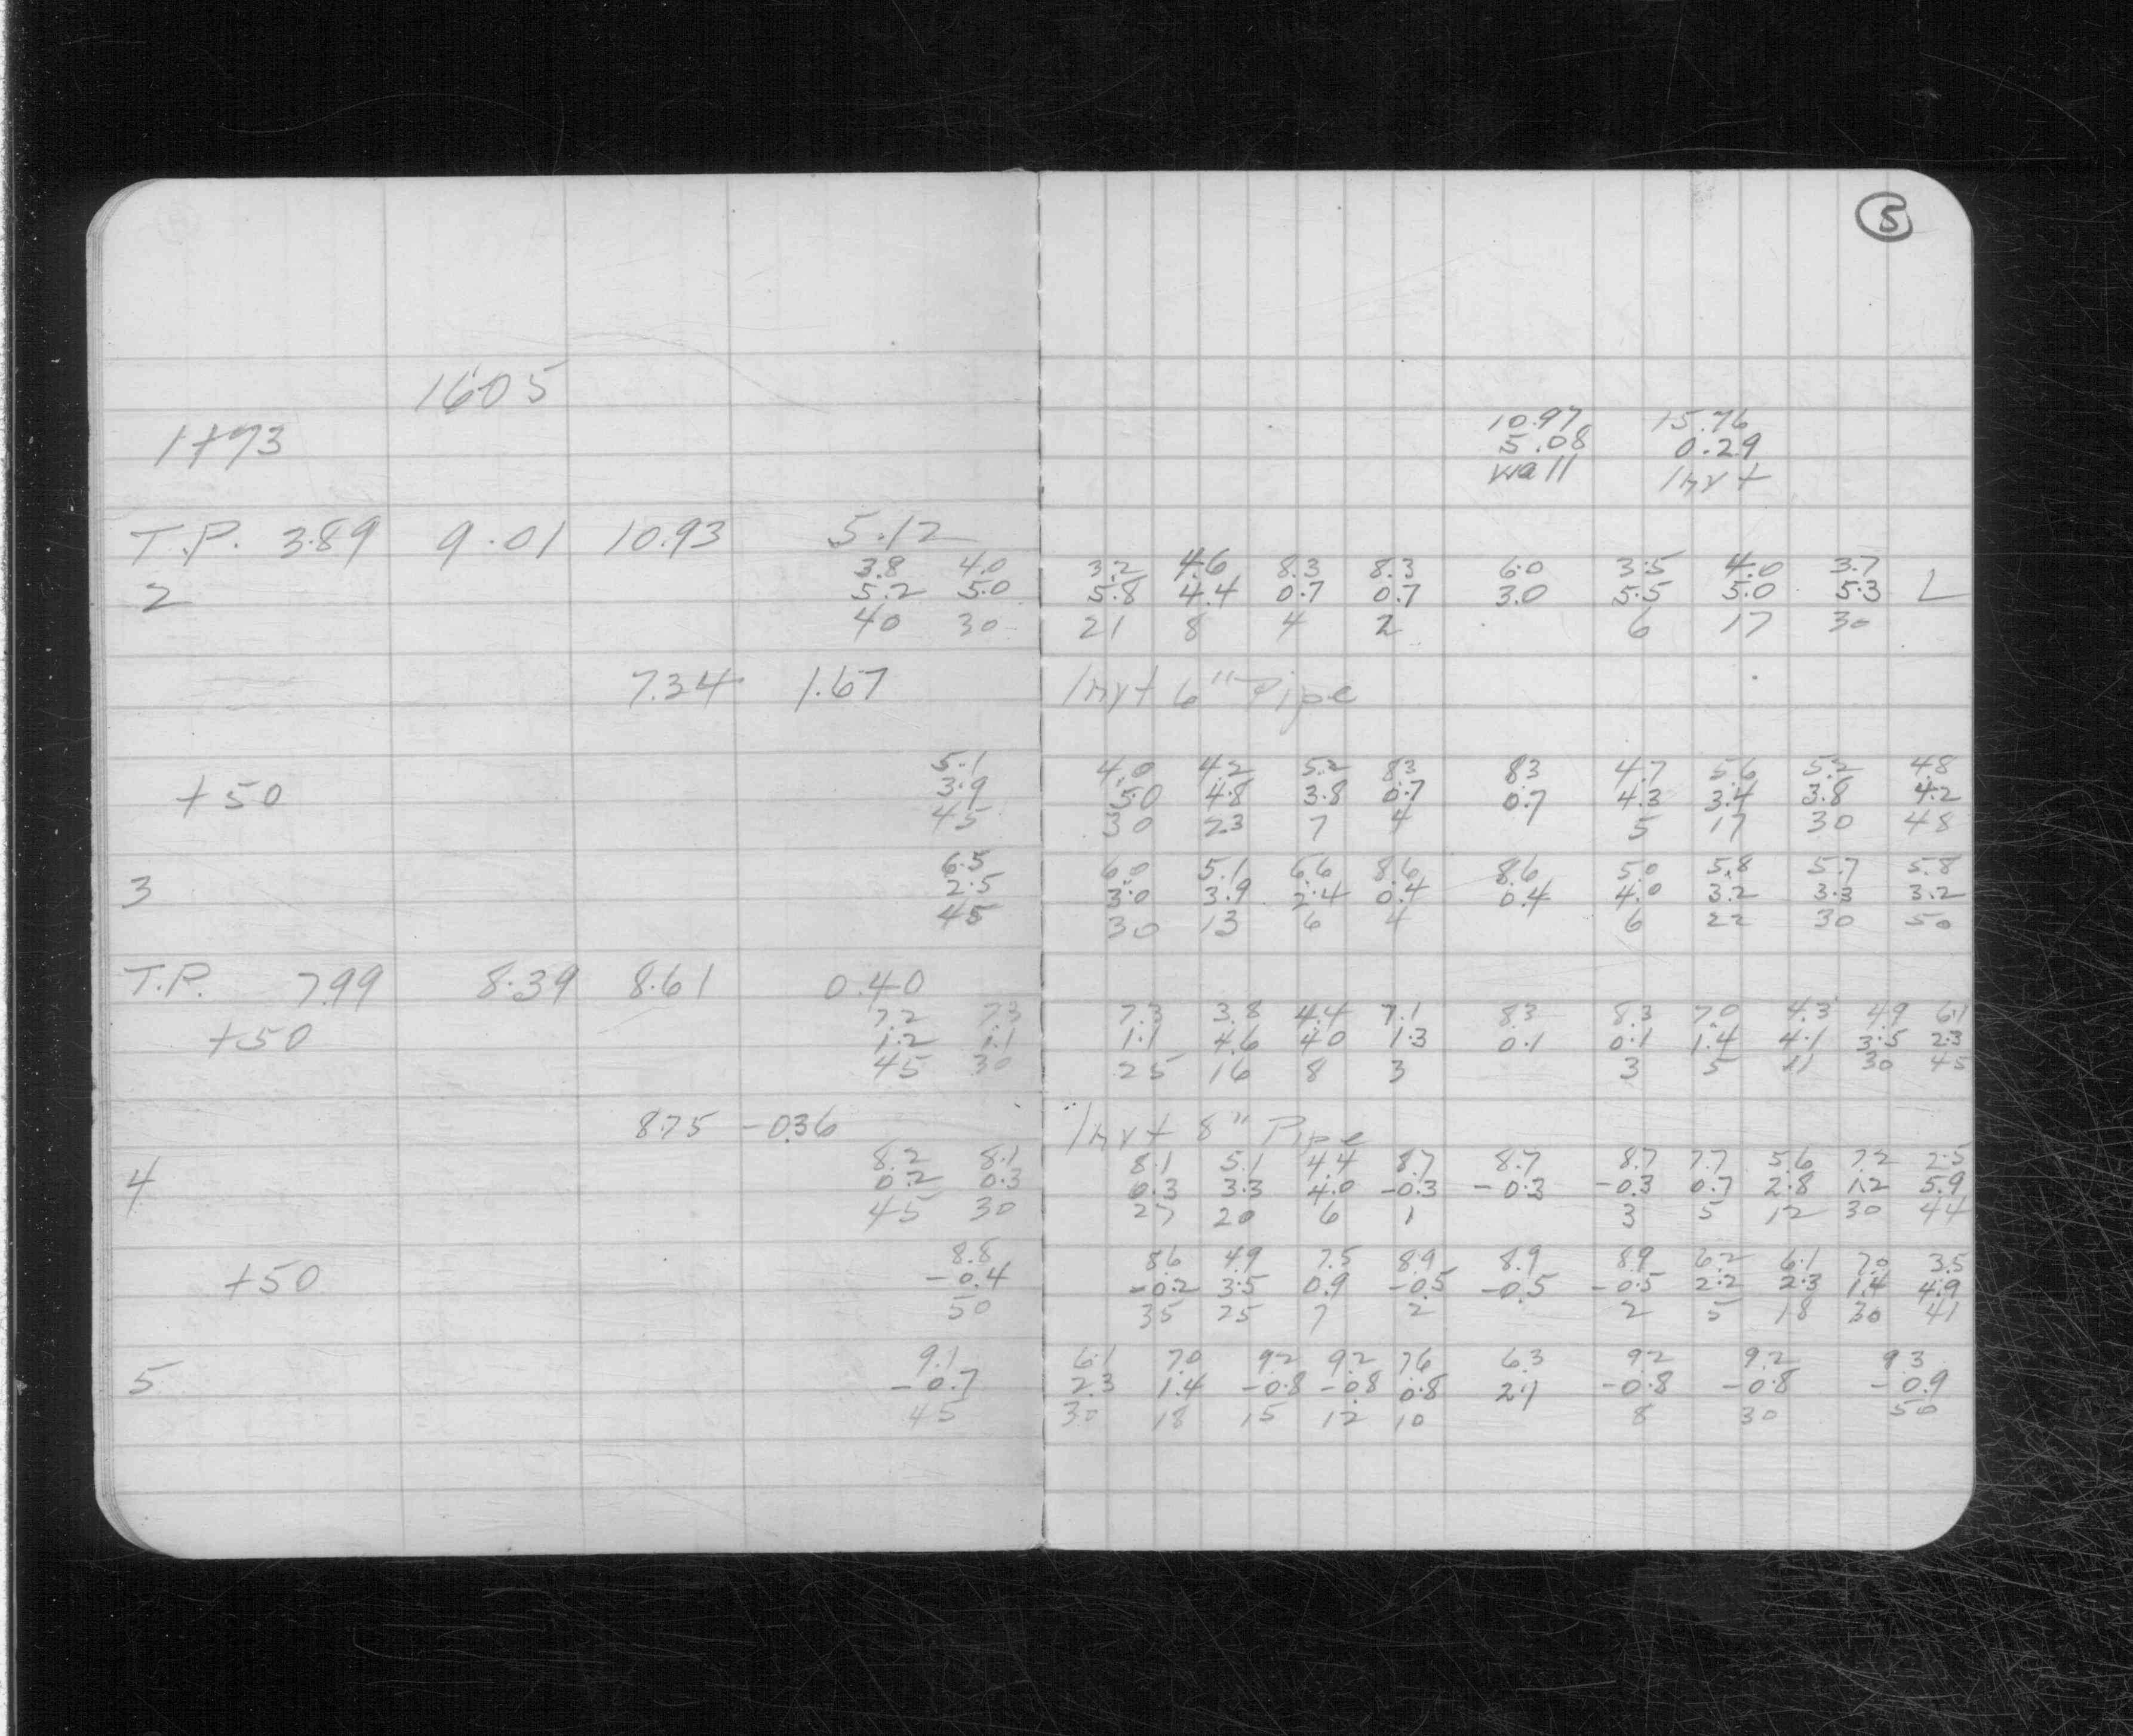 5
16.05
10.97 15.76
1+73 5.08 0.29
Wall Invt
T.P. 3.89 9.01 10.93 5.12
3.8 4.0 3.2 4.6 8.3 8.3 6.0 3.5 4.0 3.7
2 5.2 5.0 5.8 4.4 0.7 0.7 3.0 5.5 5.0 5.3 L
40 30 21 8 4 2 6 17 30
7.34 1.67 Invt 6" Pipe
5.1 4.0 4.2 5.2 8.3 8.3 4.7 5.6 5.2 4.8
+50 3.9 5.0 4.8 3.8 0.7 0.7 4.3 3.4 3.8 4.2
45 30 23 7 4 5 17 30 48
6.5 6.0 5.1 6.6 8.6 8.6 5.0 5.8 5.7 5.8
3 2.5 3.0 3.9 2.4 0.4 0.4 4.0 3.2 3.3 3.2
45 30 13 6 4 6 22 30 50
T.P. 7.99 8.39 8.61 0.40
7.2 7.3 7.3 3.8 4.4 7.1 8.3 8.3 7.0 4.3 4.9 6.1
+50 1.2 1.1 1.1 4.6 4.0 1.3 0.1 0.1 1.4 4.1 3.5 2.3
45 30 25 16 8 3 3 5 11 30 45
8.75 -0.36 Invt 8" Pipe
8.2 8.1 8.1 5.1 4.4 8.7 8.7 8.7 7.7 5.6 7.2 2.5
4 0.2 0.3 0.3 3.3 4.0 -0.3 -0.3 -0.3 0.7 2.8 1.2 5.9
45 30 27 20 6 1 3 5 12 30 44
8.8 8.6 4.9 7.5 8.9 8.9 8.9 6.2 6.1 7.0 3.5
+50 -0.4 -0.2 3.5 0.9 -0.5 -0.5 -0.5 2.2 2.3 1.4 4.9
50 35 25 7 2 2 5 18 30 41
9.1 6.1 7.0 9.2 9.2 7.6 6.3 9.2 9.2 9.3
5 -0.7 2.3 1.4 -0.8 -0.8 0.8 2.1 -0.8 -0.8 -0.9
45 30 18 15 12 10 8 30 50